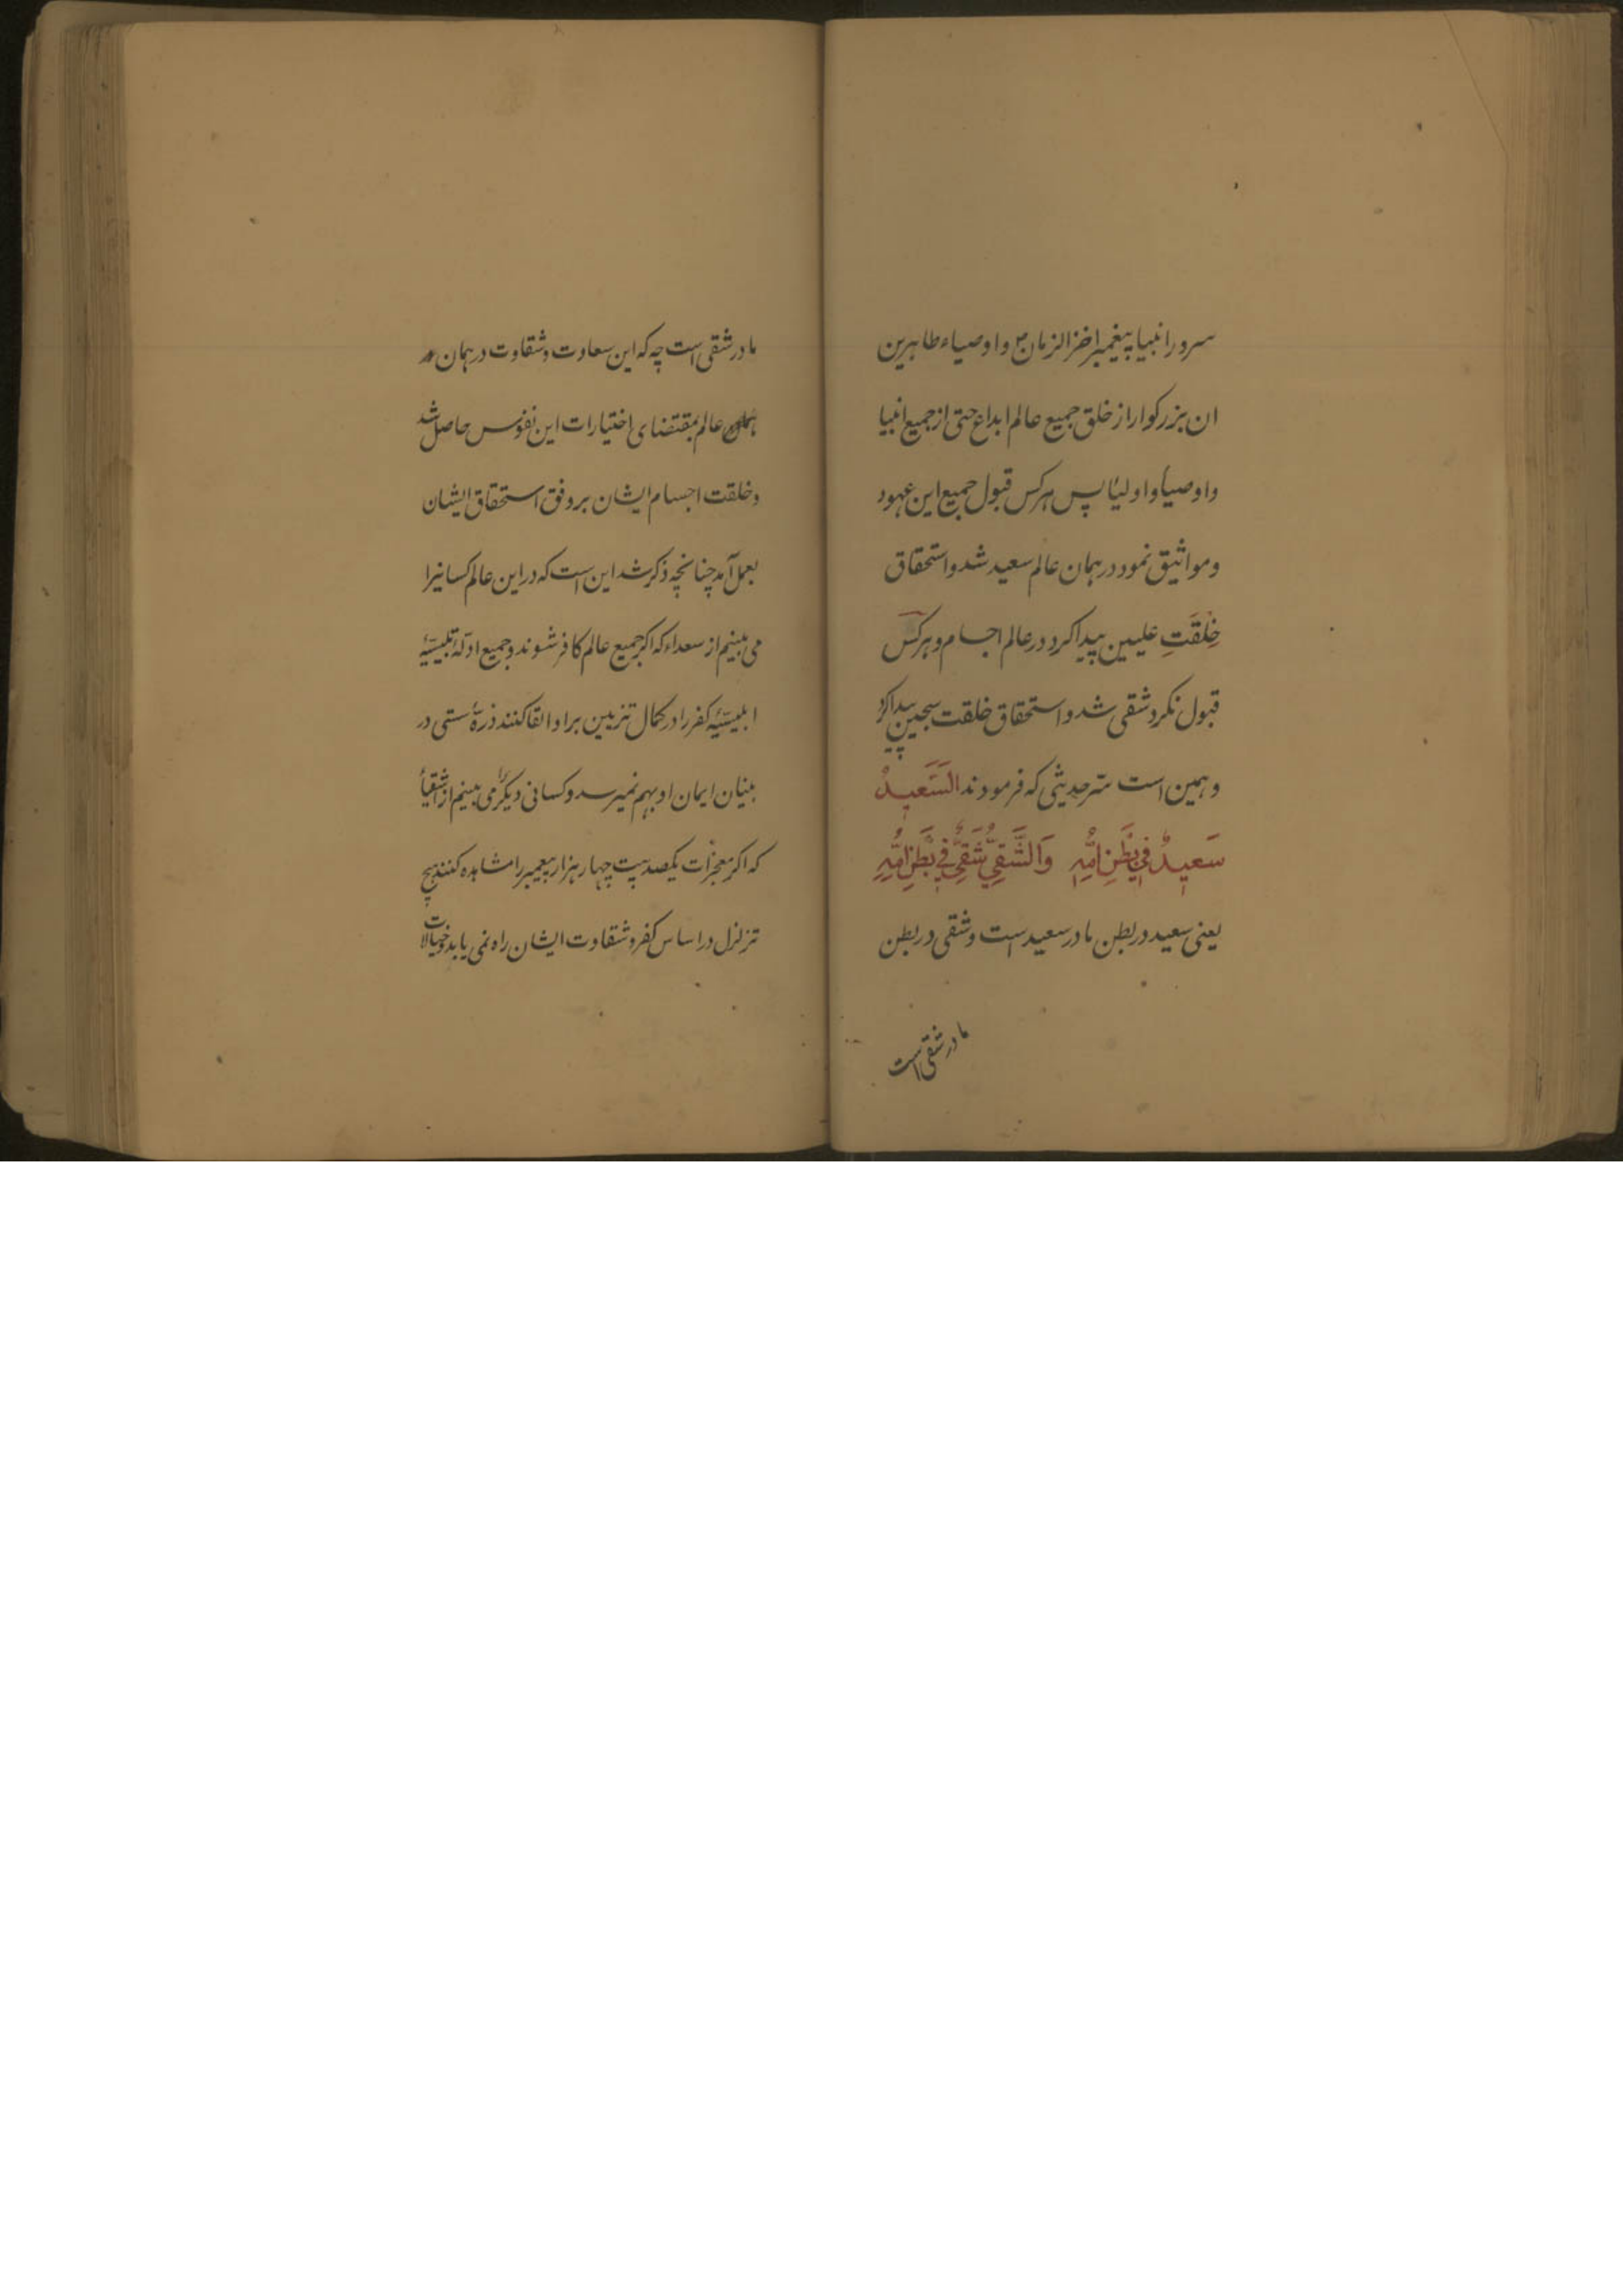 سرور انبیا پیغمبر اخر الزمان ص و اوصیاء طاهرین
ان بزرکوار از خلق جمیع عالم ابداع حتی از جمیع انبیا
و اوصیا و اولیا پس هرکس قبول جمیع این عهود
و مواثیق نمود در همان عالم سعید شد و استحقاق
خِلْقَتِ علیین پیدا کرد در عالم اجسام و هرکس
قبول نکرد شقی شد و استحقاق خلقت سجین پیدا کرد
و همین است سرّ حدیثی که فرمودند السَّعیدُ
سَعیدٌ فی بَطْنِ اُمِّهِ وَالشَّقِیُّ شَقِیٌّ فی بَطْنِ اُمِّهِ
یعنی سعید در بطن مادر سعید است و شقی در بطن
مادر شقی است
مادر شقی است چه که این سعاوت و شقاوت در همان
عالم بمقتضای اختیارات این نفوس حاصل شد
و خلقت اجسام ایشان بر وفق استحقاق ایشان
بعمل آمد چنانچه ذکر شد این است که در این عالم کسانیرا
می بینم از سعداء که اکر جمیع عالم کافر شوند و جمیع ادلّهٔ تلبیسیّهٔ
ابلیسیّهٔ کفر را در کمال تزیین بر او القا کنند ذرهٔ سستی در
بنیان ایمان او بهم نمیرسد و کسانی دیکر را می بینم از اشقیاء
که اکر معجزات یکصد بیت چهار هزار پیغمبر را مشاهده کنند هیچ
تزلزل در اساس کفر و شقاوت ایشان راه نمی یابد و خیالات